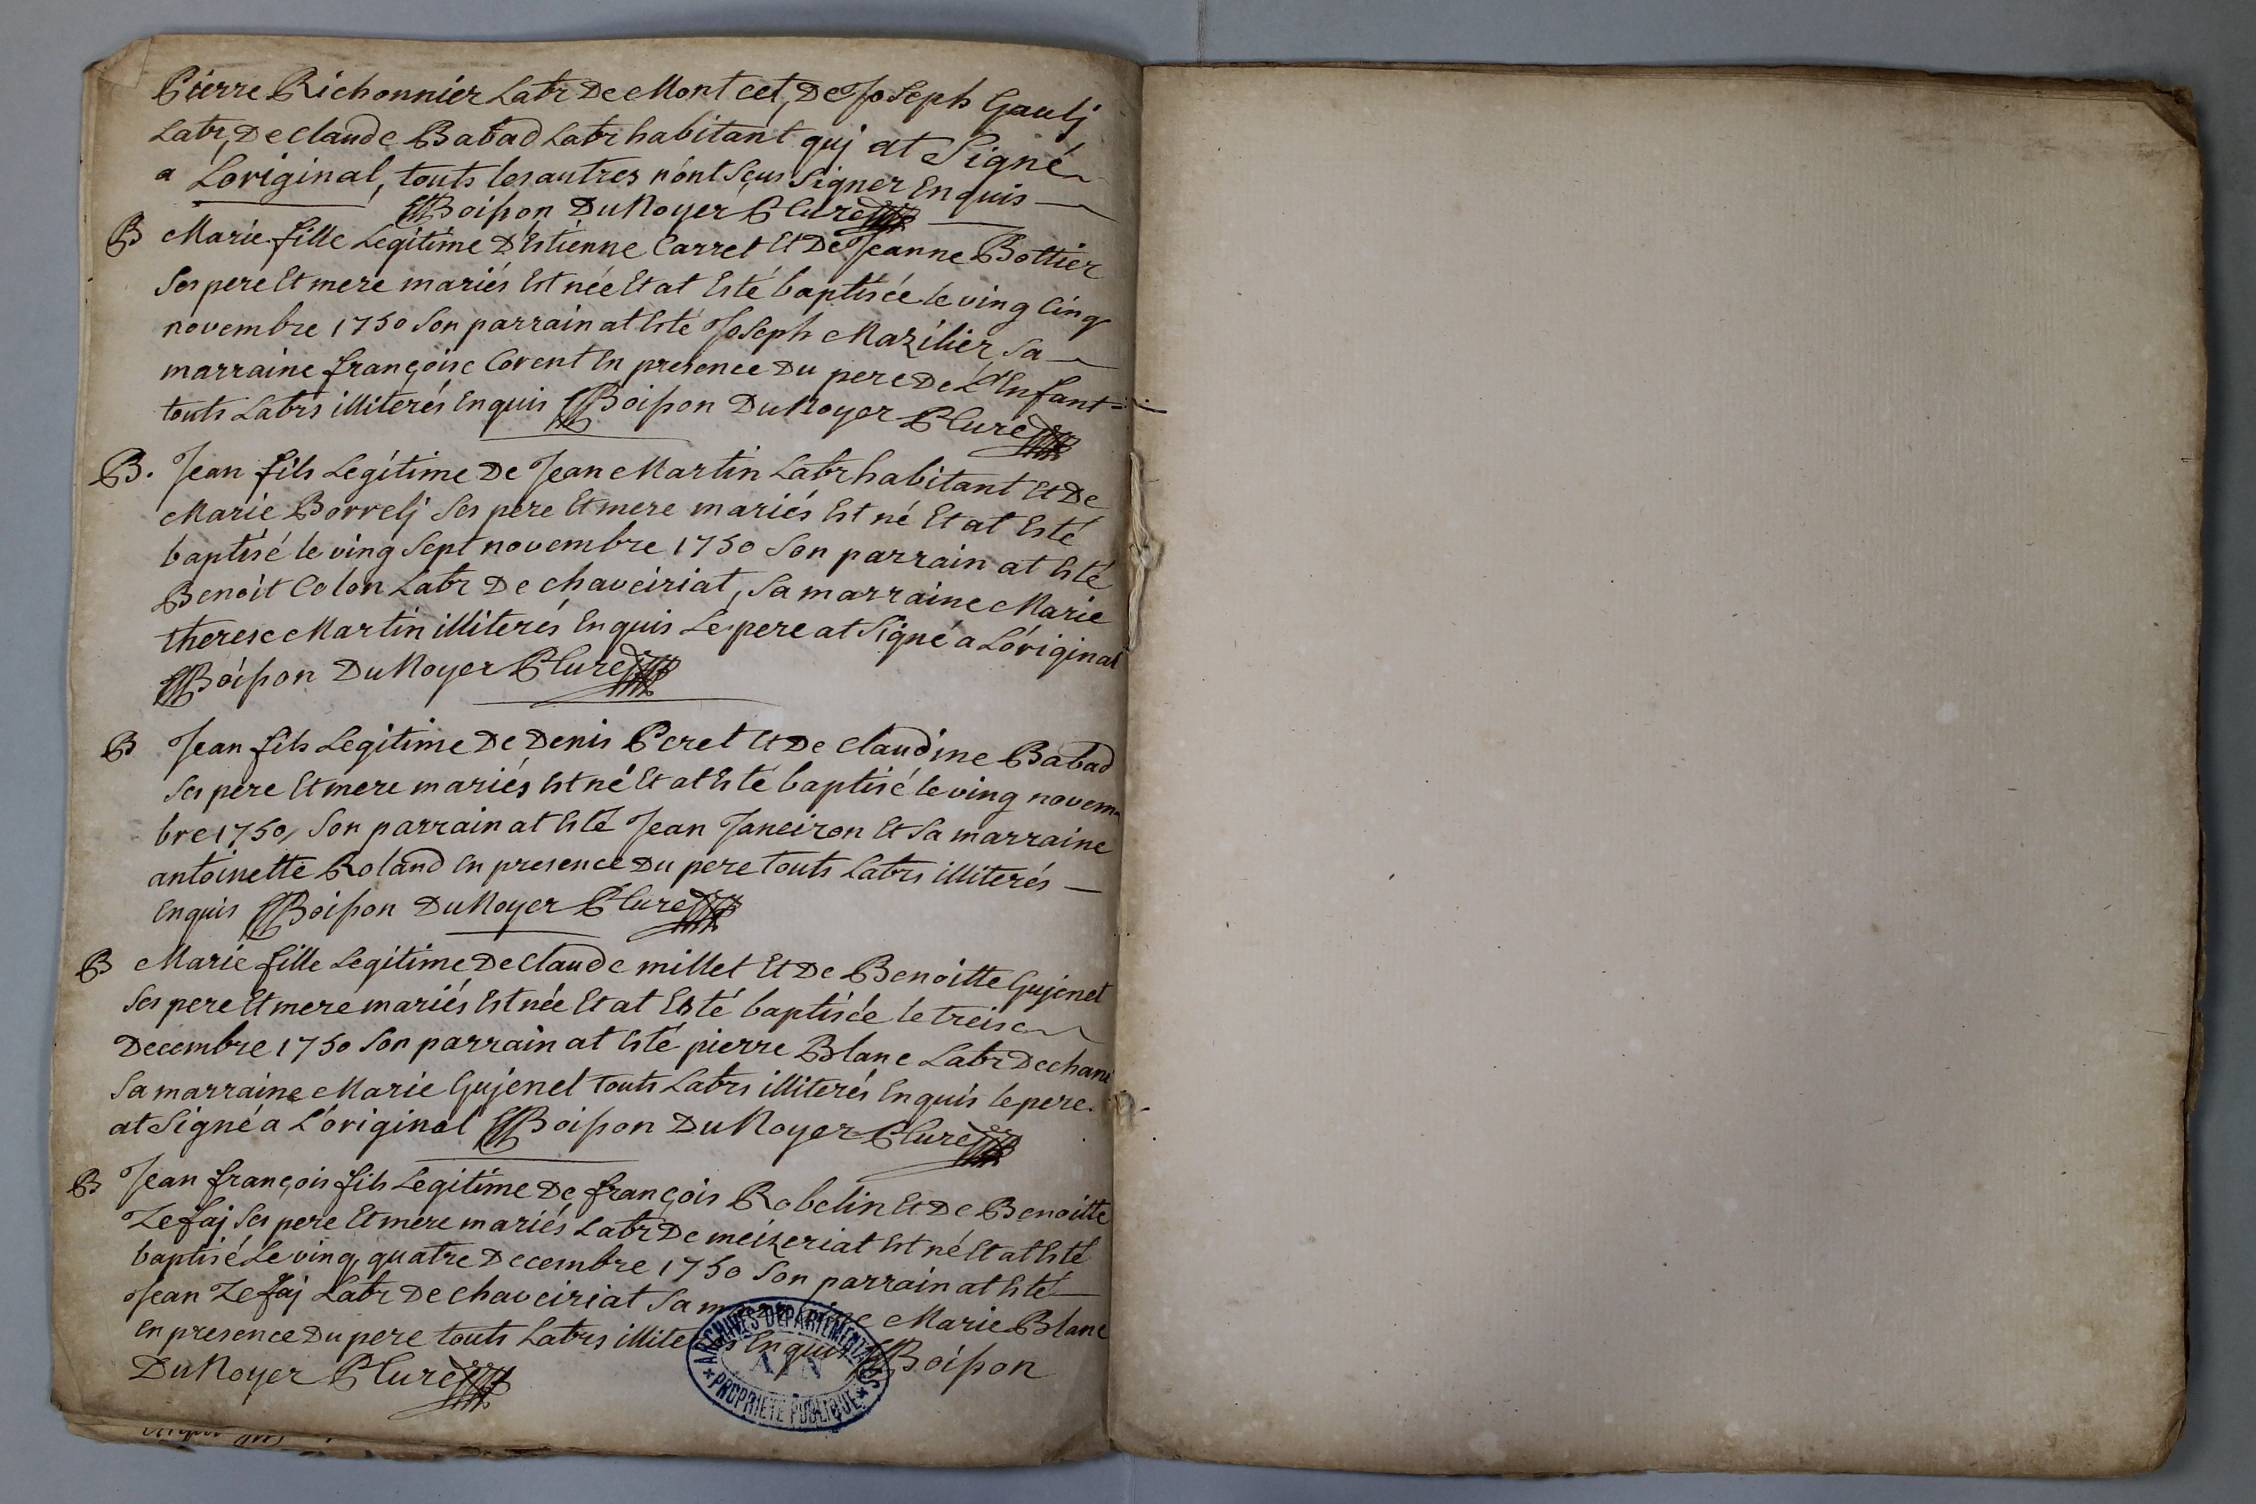 Pierre Richonnier Labr De Montcet, De Joseph Gaulj
Labr, De claude Babad Labr habitant quj at Signé
a Loriginal, touts les autres n'ont Sçus Signer Enquis
Boisson DuNoyer Curé
B Marie fille Legitime D'Estienne Carret Et De Jeanne Bottier
Ses pere Et mere mariés Est née Et at Esté baptisée le ving Cinq
novembre 1750 Son parrain at Esté Joseph Mazilier Sa
marraine françoise Corent En presence Du pere De L'Enfant
touts Labrs illiterés Enquis Boisson DuNoyer Curé
B. Jean fils Legitime De Jean Martin Labr habitant Et De
Marie Borrelj Ses pere Et mere mariés Est né Et at Esté
baptisé le ving Sept novembre 1750 Son parrain at Esté
Benoit Colon Labr De chaveiriat, Sa marraine Marie
therese Martin illiterés Enquis Le pere at Signé a L'original
Boisson DuNoyer Curé
B Jean fils Legitime De Denis Peret Et De claudine Babad
Ses pere Et mere mariés Est né Et at Esté baptisé le ving novem-
bre 1750, Son parrain at Esté Jean Janeiron Et Sa marraine
antoinette Roland En presence Du pere touts Labrs illiterés
Enquis Boisson DuNoyer Curé
B Marie fille Legitime De claude millet Et De Benoitte Gujenet
Ses pere Et mere mariés Est née Et at Esté baptisée le treise
Decembre 1750 Son parrain at Esté pierre Blanc Labr De chane
Sa marraine Marie Gujenet touts Labrs illiterés Enquis le pere
at Signé a L'original Boisson DuNoyer Curé
B Jean françois fils Legitime De françois Robelin Et De Benoitte
Zefaj Ses pere Et mere mariés Labr De meizeriat Est né Et at Esté
baptisé Le ving quatre Decembre 1750 Son parrain at Esté
Jean Zefaj Labr De chaveiriat Sa marraine Marie Blanc
En presence Du pere touts Labrs illiterés Enquis Boisson
DuNoyer Curé
ARCHIVES DÉPARTEMENTALES
AIN
PROPRIÉTÉ PUBLIQUE